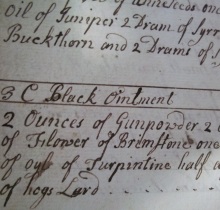 of Wine seeds one
Oil of Juniper 2 Dram of Syrr
Buckthorn and 2 Drams of
3 C Black Ointment
2 Ounces of Gunpowder 2
of Fflower of Bremstone one
of oyle of Turpintine half a
of hogs Lard